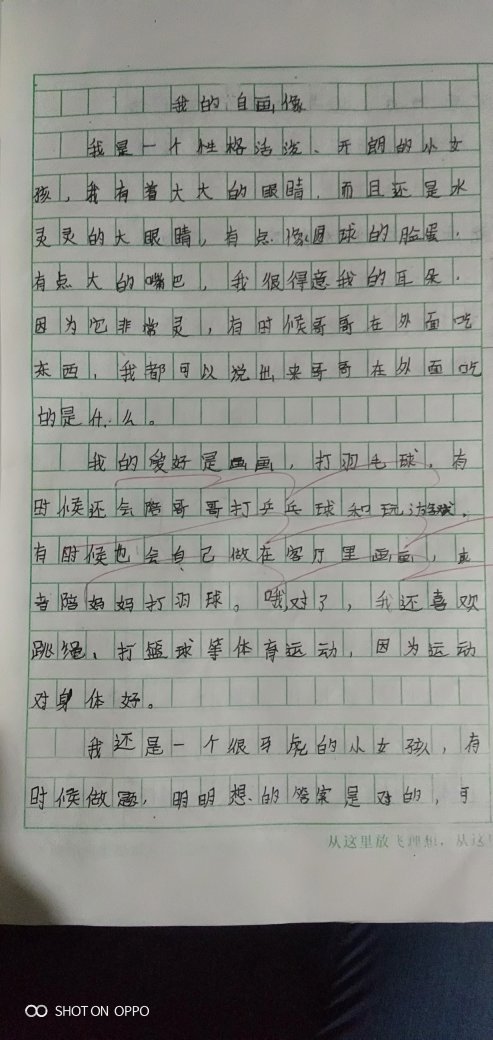 我的自画像
我是一个性格活泼、开朗的小女
孩，我有着大大的眼睛，而且还是水
灵灵的大眼睛，有点像圆球的脸蛋，
有点大的嘴巴，我很得意我的耳朵，
因为它非常灵，有时候哥哥在外面吃
东西，我都可以说出来哥哥在外面吃
的是什么。
我的爱好是画画，打羽毛球，有
时候还会陪哥哥打乒乓球和玩游戏，
有时候也会自己做在客厅里画画，或
者陪妈妈打羽球。哦对了，我还喜欢
跳绳、打篮球等体育运动，因为运动
对身体好。
我还是一个很马虎的小女孩，有
时候做题，明明想的答案是对的，可
从这里放飞理想，从这
SHOT ON OPPO